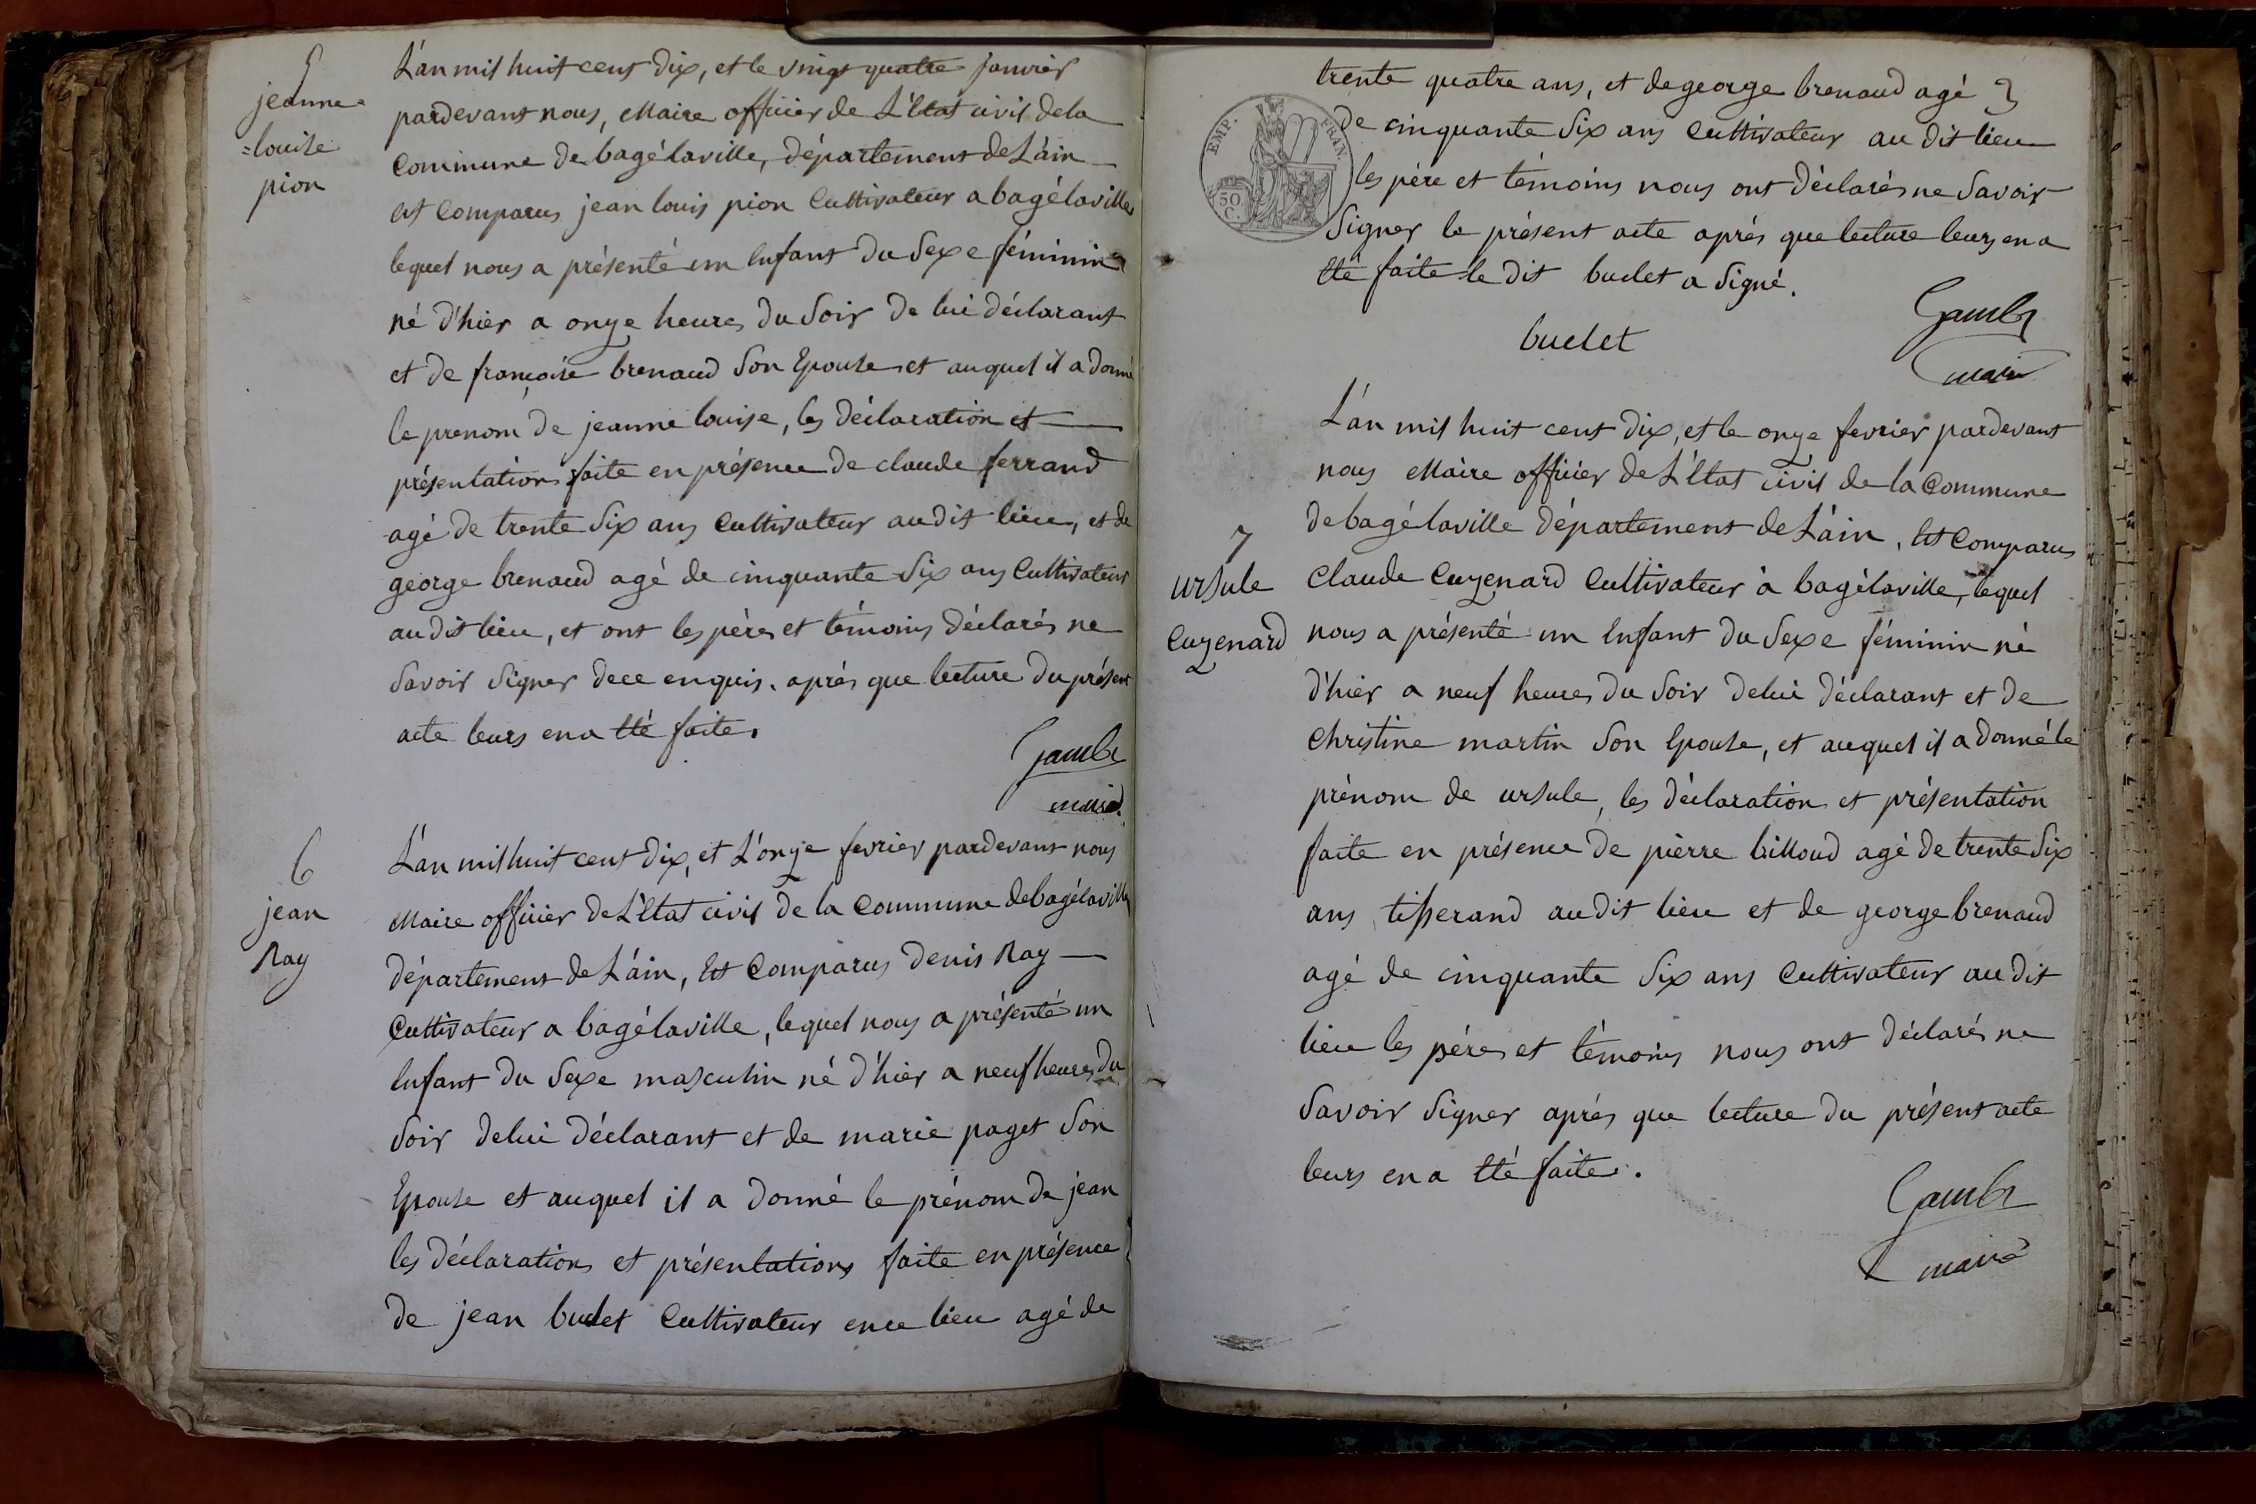 5
jeanne
=louise
pion
L'an mil huit cent dix, et le vingt quatre janvier
pardevant nous, Maire officier de L'Etat civil de la
Commune de bagélaville, département de L'ain
est Comparus jean louis pion Cultivateur a bagélaville
lequel nous a présenté un Enfant du Sexe féminin
né d'hier a onze heures du Soir de lui déclarant
et de françoise brenaud Son Epouse et auquel il a donné
le prenom de jeanne louise, les déclaration et
présentation faite en présence de claude ferrand
agé de trente Six ans Cultivateur audit lieu, et de
george brenaud agé de cinquante Six ans Cultivateur
audit lieu, et ont les pères et témoins déclarés ne
Savoir Signer de ce enquis. après que lecture du présent
acte leurs en a Eté faite.
Gambe
maire.
6
jean
Ray
L'an mil huit cent dix, et L'onze fevrier pardevant nous
Maire officier de L'Etat civil de la Commune de bagélaville
département de L'ain, Est Comparus Denis Ray
Cultivateur a bagélaville, lequel nous a présenté un
Enfant du Sexe masculin né d'hier a neuf heures du
Soir de lui déclarant et de marie paget Son
Epouse et auquel il a donné le prénom de jean
les déclarations et présentations faite en présence
de jean budet Cultivateur en ce lieu agé de
trente quatre ans, et de george brenaud agé
de cinquante Six ans Cultivateur au dit lieu
les père et témoins nous ont déclarés ne Savoir
Signer le présent acte après que lecture leurs en a
Eté faite le dit budet a Signé.
EMP. FRAN.
50 C.
budet
Gambe
maire
7
ursule
Cuzenard
L'an mil huit cent dix, et le onze fevrier pardevant
nous Maire officier de L'Etat civil de la Commune
de bagélaville département de L'ain, Est Comparus
Claude Cuzenard Cultivateur à bagélaville, lequel
nous a présenté un Enfant du Sexe féminin né
d'hier a neuf heures du Soir de lui déclarant et de
Christine martin Son Epouse, et auquel il a donné le
prénom de ursule, les déclaration et présentation
faite en présence de pierre billoud agé de trente Six
ans tisserand audit lieu et de george brenaud
agé de cinquante Six ans Cultivateur au dit
lieu les pères et témoins nous ont déclarés ne
Savoir Signer après que lecture du présent acte
leurs en a Eté faite.
Gambe
maire